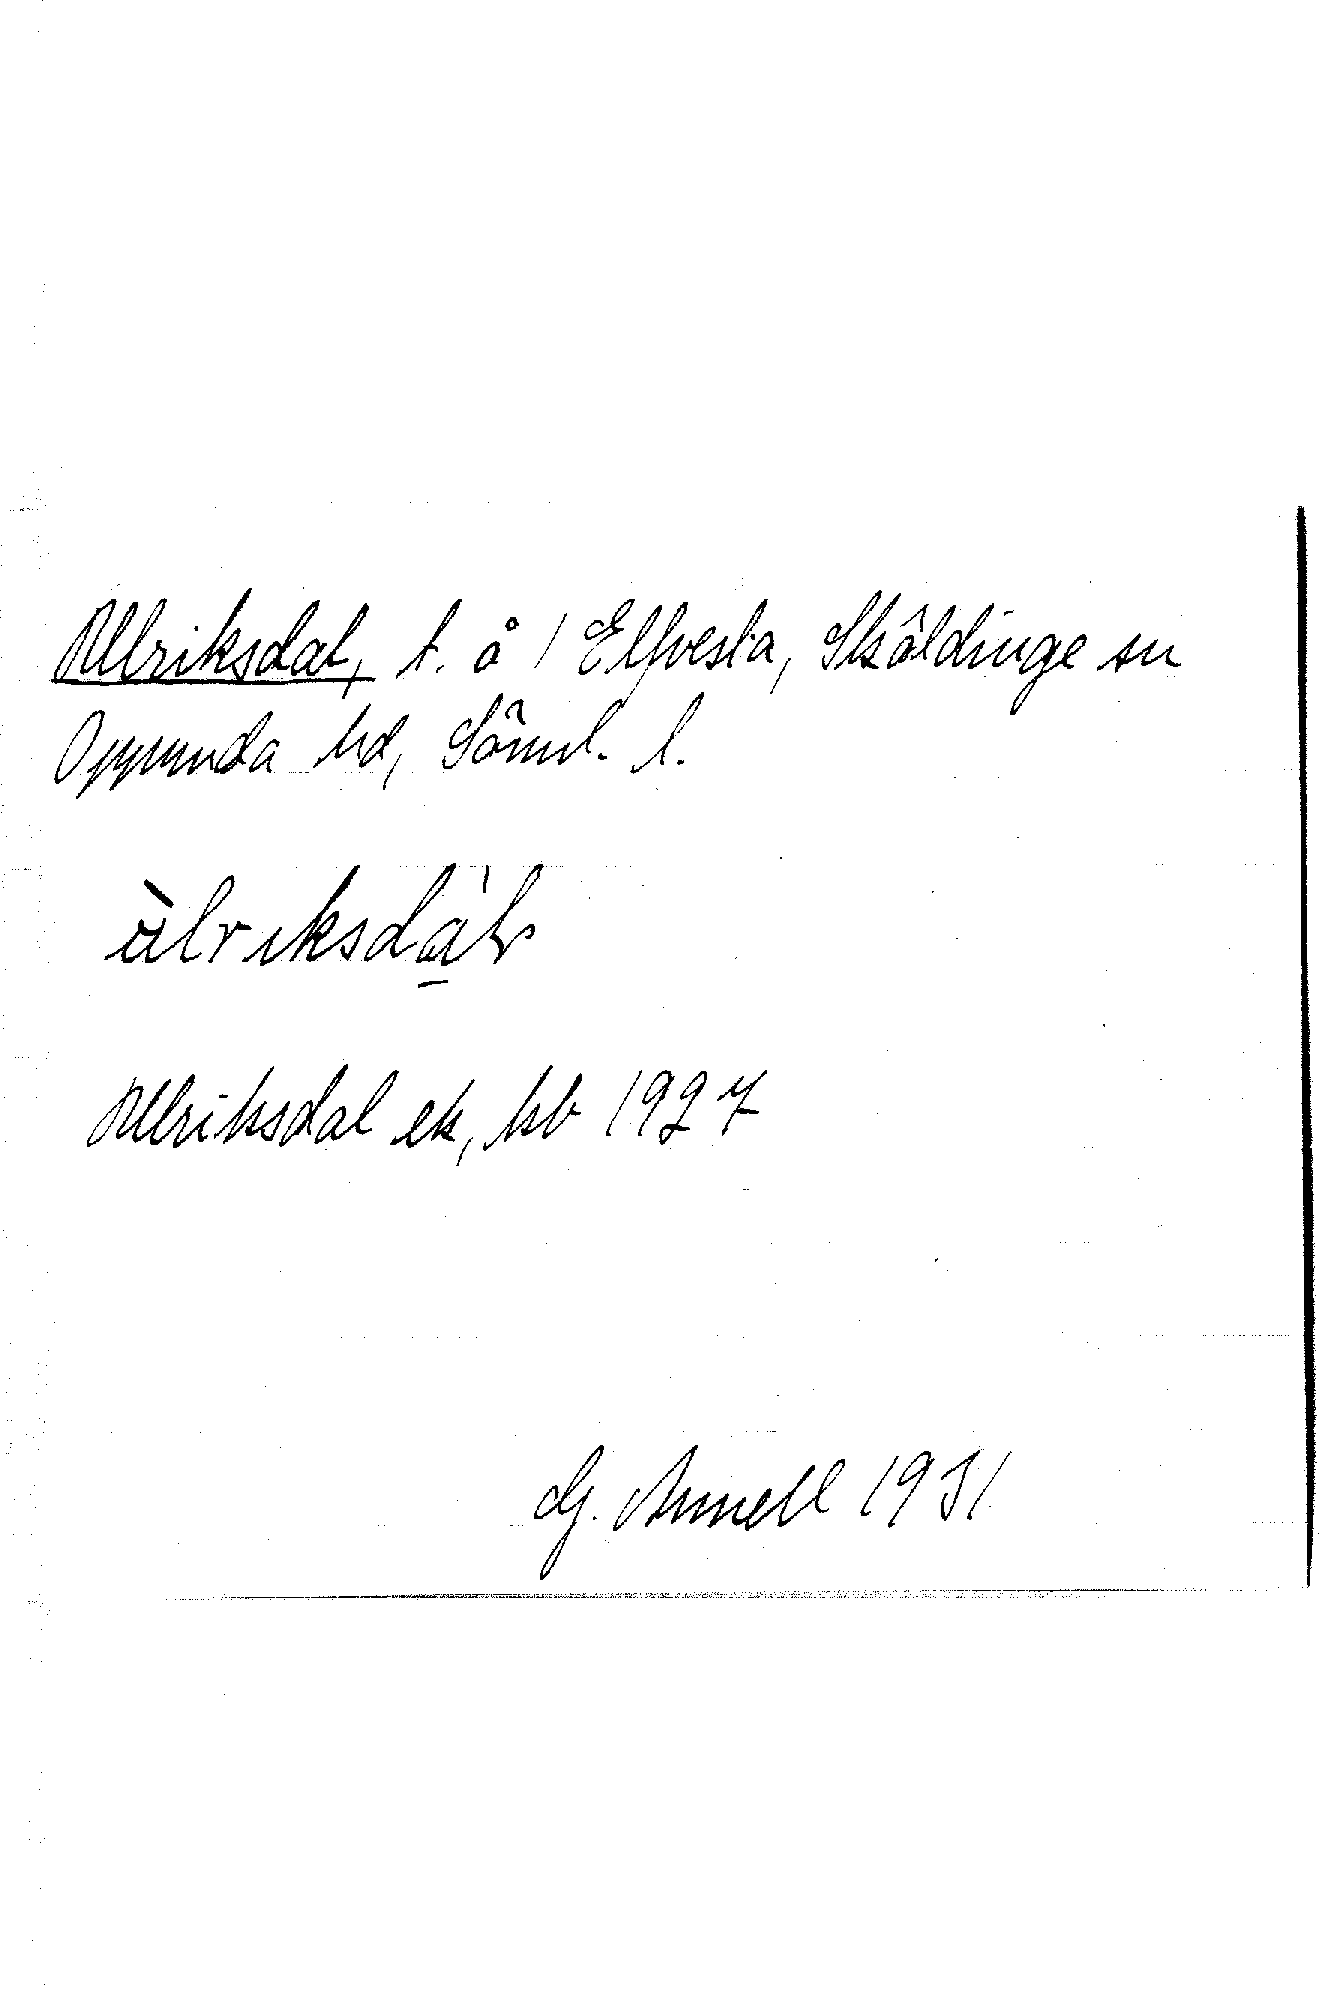 Ulriksdal, t. å 1 Elfvesta, Sköldinge sn
Oppunda hd, Söml. l.
ùlriksdàl
Ulriksdal ek, kb 1927
G. Annell 1931